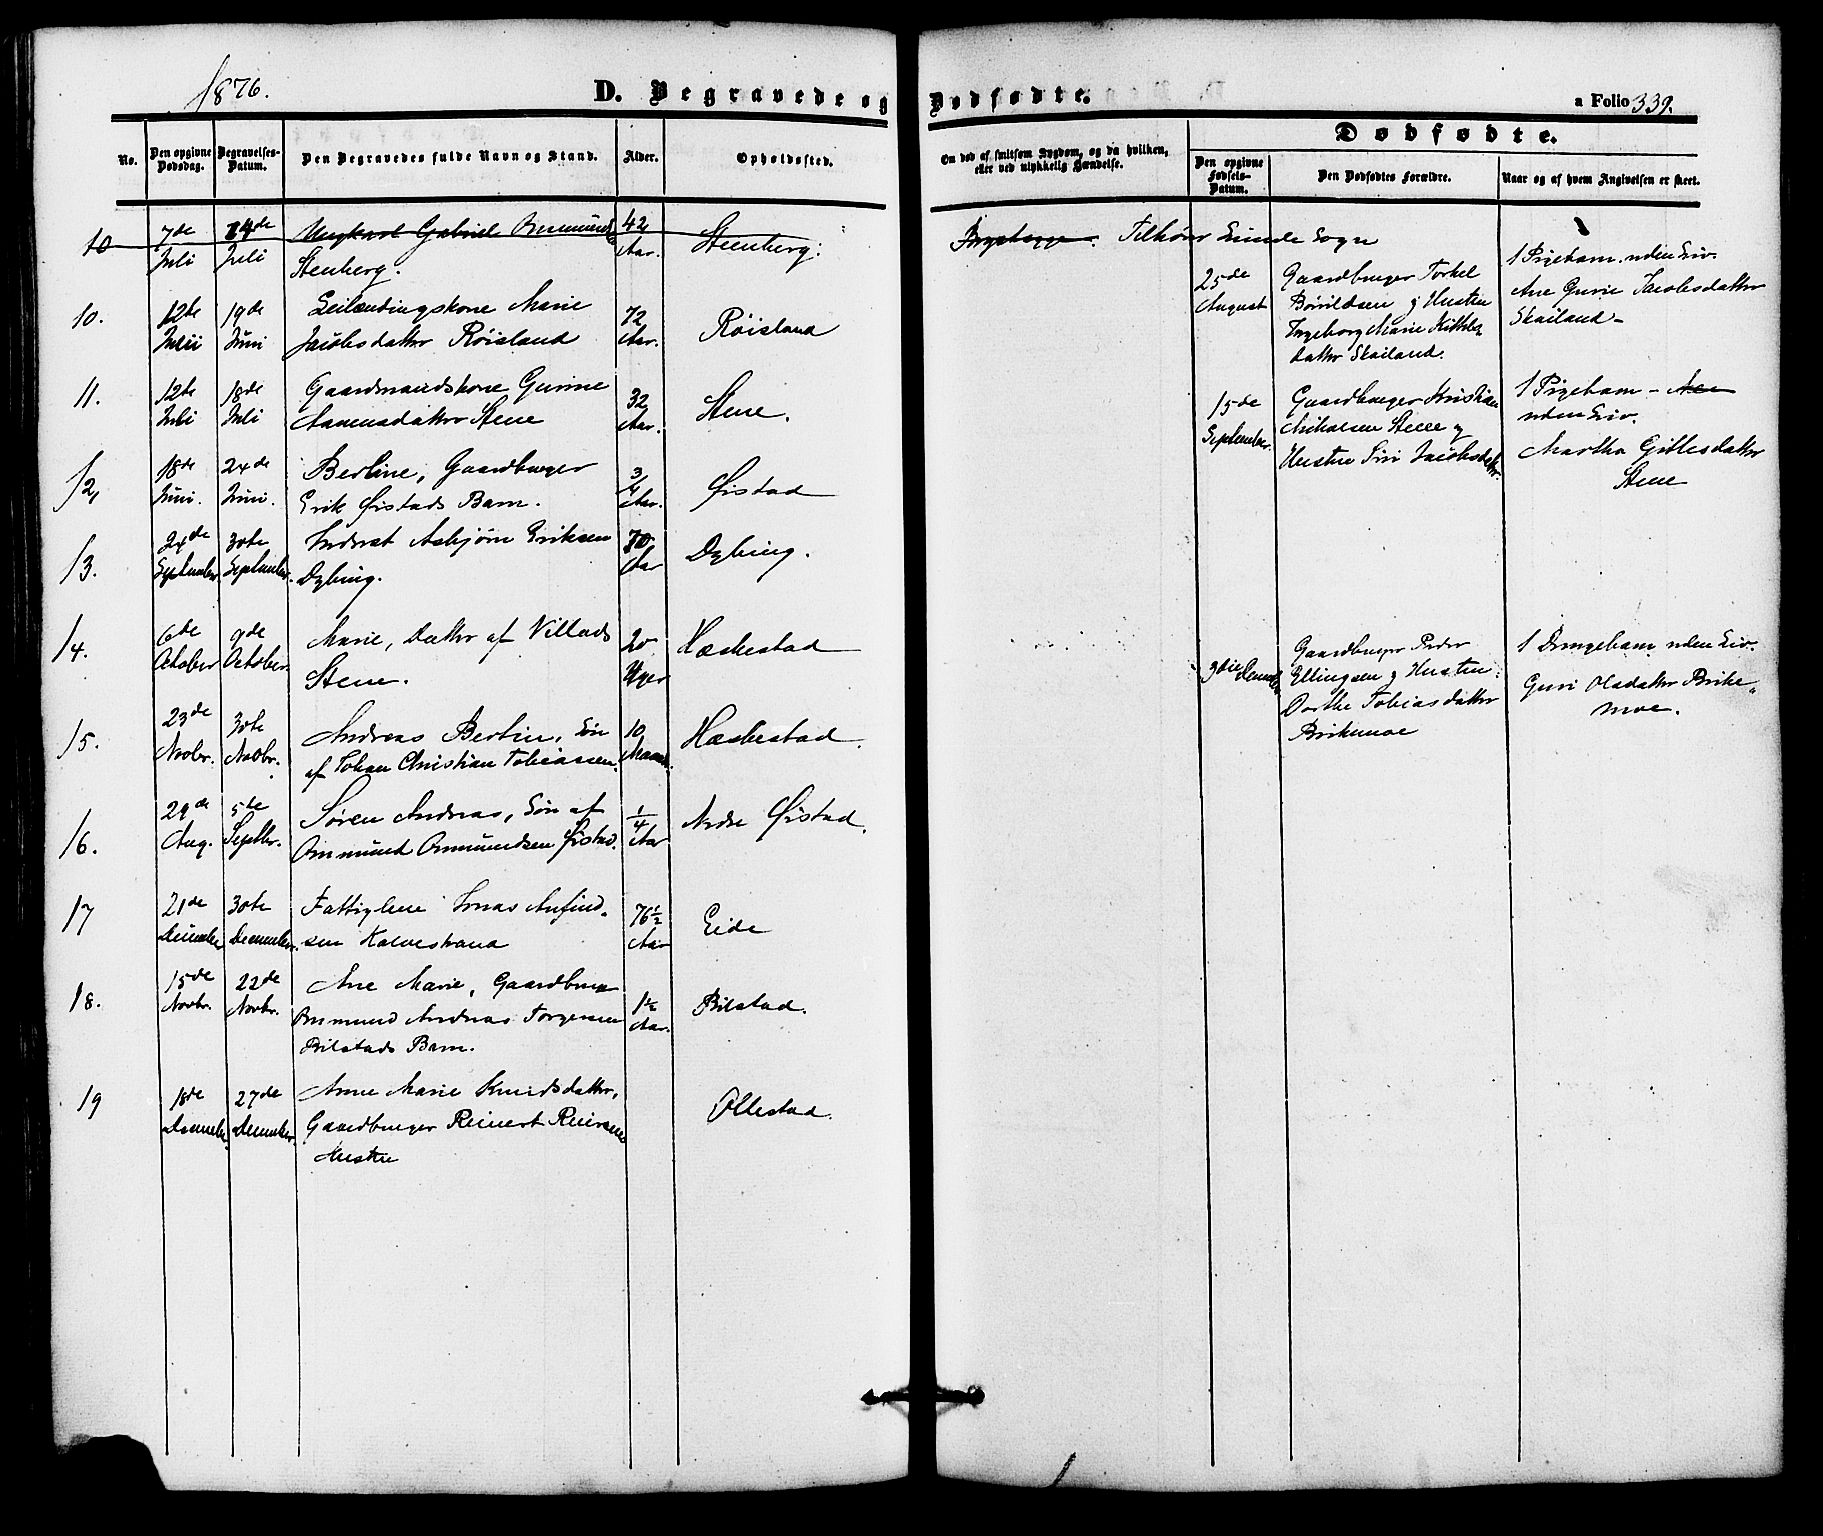 1876.
D. Begravede og Dødfødte.
a Folio 339.
No.
Den opgivne Dødsdag.
Begravelses-Datum.
Den Begravedes fulde Navn og Stand.
Alder.
Opholdssted.
Om død af smitsom Sygdom, og da hvilken,
eller ved ulykkelig Hændelse.
Dødfødte.
Den opgivne Fødsels-Datum.
Den Dødfødtes Forældre.
Naar og af hvem Angivelsen er skeet.
10 7de 14de Ungkarl Gabriel 42 Steenberg: Tilhører Lunde Sogn
Juli Juli Stenberg. Aar.
10. 12te 19de Leilændingskone Marie 72 Røisland
Juni Juni Jacobsdatter Røisland Aar.
11. 12te 18de Gaardmandskone Gurine 32 Stene.
Juli Juli Aanensdatter Stene Aar.
12, 18de 24de Berline, Gaardbruger 3/4 Øistad
Juni. Juni. Erik Øistads Barn. Aar.
13. 24de 30te Inderst Asbjørn Eriksen 70 Dybing.
September September. Dybing. Aar
14. 6de 9de Marie, Datter af Villads 20 Hæskestad
October October. Stene. Uger
15. 23de 30te Andreas Bertin, Søn 10 Hæskestad.
Novbr. Novbr. af Johan Christian Tobiassen. Maan.
16. 29de 5te Søren Andreas, Søn af 1/4 Nedre Øistad.
Aug. Septbr. Ommund Ommundsen Øistad. Aar
17 21de 30te Fattiglem Jonas Anfind- 76½ Eide
December December. sen Kalvestrand Aar
18. 15de 22de Ane Marie, Gaardbruger 1½ Bilstad.
Novbr. Novbr. Ommund Andreas Torgersen Aar.
Bilstads Barn.
19 18de 27de Anne Marie Knudsdatter, Ollestad.
December. December. Gaardbruger Reinert Reiersens
Hustru
25de August
Gaardbruger Torkel
Bøvildsen og Hustru
Ingeborg Marie Kittels-
datter Skailand.
1 Pigebarn uden Liv.
Ane Gurie Jacobsdatter
Skailand-
15de September.
Gaardbruger Kristian
Mikalsen Stene og
Hustru Siri Jacobsdatter.
1 Pigebarn - Ane
uden Liv.
Martha Gitlesdatter
Stene
3die Decembr.
Gaardbruger Peder
Ellingsen og Hustru
Dorthe Tobiasdatter
Brikemoe
1 Drengebarn uden Liv.
Guri Olsdatter Brike-
moe.